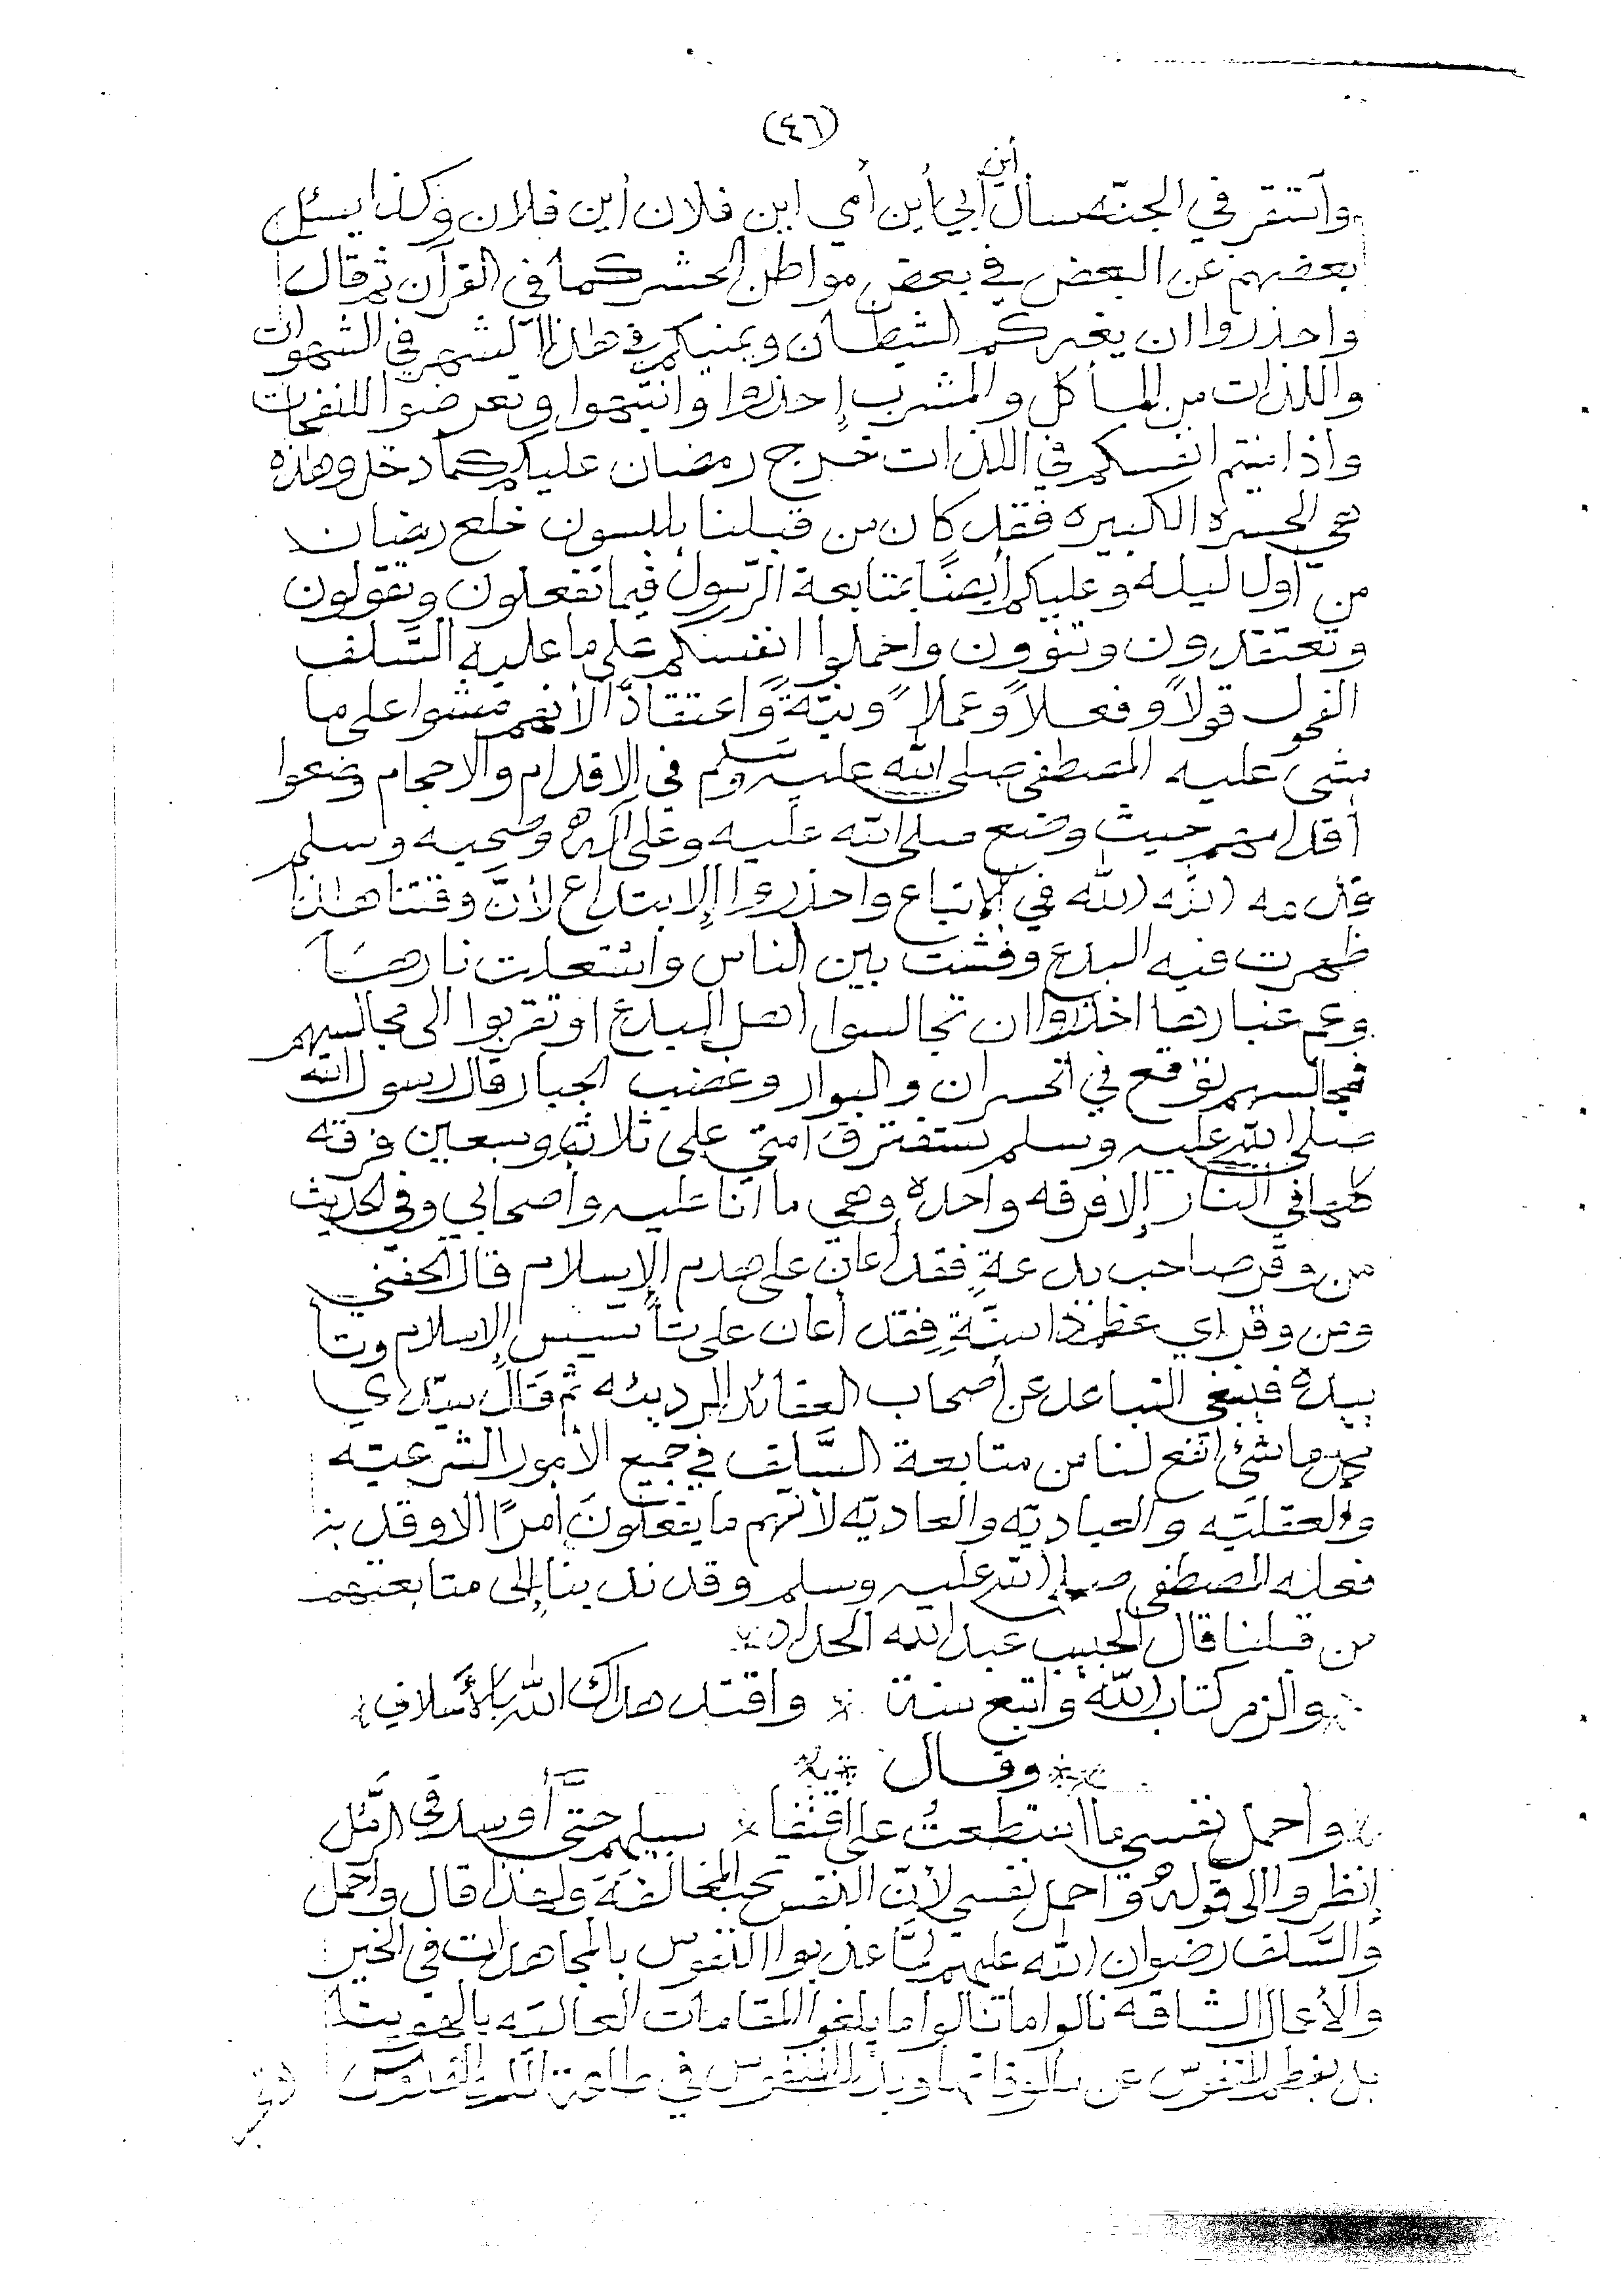 (٤٦)
واستقر في الجنّه سأل أين أبي أين أمي اين فلان أين فلان وكذا يسئل
بعضهم عن البعض في بعض مواطن الحشر كما في القرآن ثم قال
واحذروا ان يغركم الشيطان ويمنيكم في هاذا الشهر في الشهوات
واللذات من المأكل والمشرب إحذروا وانتبهوا وتعرضوا للنفحات
واذا نيتم انفسكم في اللذات خرج رمضان عليكم كما دخل وهاذه
هي الحسرة الكبيره فقد كان من قبلنا يلبسون خلع رمضان
من أول ليله وعليكم أيضًا بمتابعة الرّسول فيما تفعلون وتقولون
وتعتقدون وتنوون واحملوا انفسكم على ما عليه السَّلف
الفحول قولاً وفعلاً وعملاً ونيّةً واعتقادًا لأنهم مشوا على ما
مشى عليه المصطفى صلى الله عليه وسلم في الاقدام والاحجام وضعوا
أقدامهم حيث وضع صلى الله عليه وعلى آله وصحبه وسلم
قدمه الله الله في الإتباع واحذروا الإبتداع لأنَّ وقتنا هاذا
ظهرت فيه البدع وفشت بين الناس واشتعلت نارها
وعم غبارها احذروا ان تجالسوا اهل البدع او تقربوا الى مجالسهم
فمجالسهم توقع في الخسران والبوار وغضب الجبار قال رسول الله
صلى الله عليه وسلم ستفترق امتي على ثلاث وسبعين فرقه
كلها في النار إلا فرقه واحده وهي ما أنا عليه وأصحابي وفي الحديث
من وقر صاحب بدعةٍ فقد أعان على هدم الإسلام قال الحفني
ومن وقر اي عظم ذا سنّةٍ فقد أعان على تأسيس الإسلام وتأ
ييده فينبغي التباعد عن أصحاب العقائد الرديئه ثم قال سيّدي
ما شئ انفع لنا من متابعة السَّلف في جميع الأمور الشرعيّه
والعقليّه والعباديّه والعاديّه لأنهم ما يفعلونَ أمرًا الا وقد
فعله المصطفى صلى الله عليه وسلم وقد ندبنا إلى متابعتهم
من قبلنا قال الحبيب عبد الله الحداد
والزم كتاب الله واتبع سنة * واقتد هداك الله بالأسلاف
وقال
واحمل نفسي ما استطعتُ على اقتفا * سبيلهم حتى أوسد في الرّمل
إنظروا الى قوله واحمل نفسي لأنّ النفس تحب المخالفة ولهذا قال واحمل
والسَّلف رضوان الله عليهم لمّا عذبوا النفوس بالمجاهدات في الخير
والأعمال الشاقه نالوا ما نالوا ما بلغوا المقامات العاليّه بالهوينا
بل بفطم النفوس عن مألوفاتها وبذل النفوس في طاعة الملك القدوس